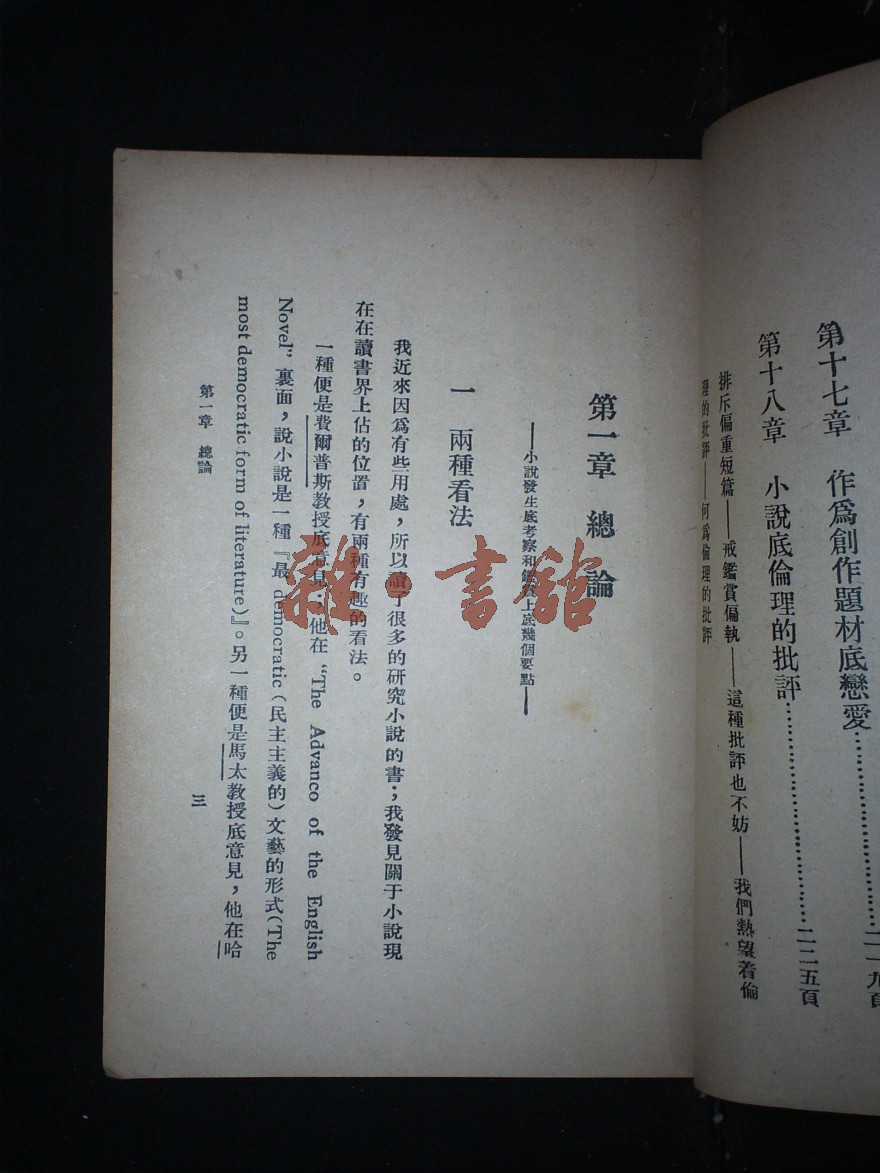 第十七章　作爲創作題材底戀愛……………………二一九頁
第十八章　小說底倫理的批評……………………二二五頁
排斥偏重短篇——戒鑑賞偏執——這種批評也不妨——我們熱望着倫
理的批評——何爲倫理的批評
第一章　總論
——小說發生底考察和鑑賞上底幾個要點——
一　兩種看法
我近來因爲有些用處，所以讀了很多的研究小說的書；我發見關于小說現
在在讀書界上佔的位置，有兩種有趣的看法。
一種便是費爾普斯教授底意見；他在“The Advanco of the English
Novel”裏面，說小說是一種『最 democratic（民主主義的）文藝的形式（The
most democratic form of literature)』。另一種便是馬太教授底意見，他在哈
第一章　總論
三
雜·書館